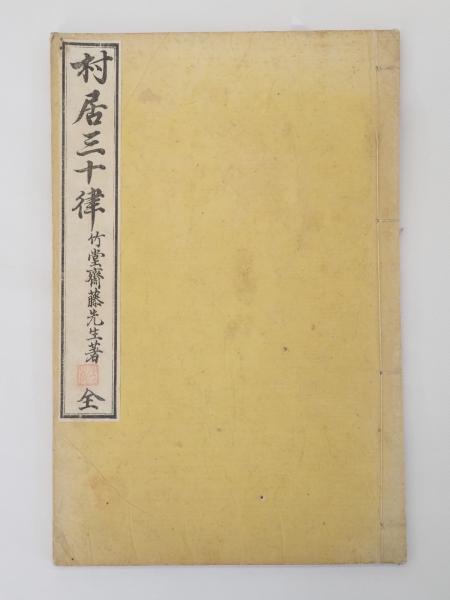 村居三十律
竹堂齋藤先生著
全